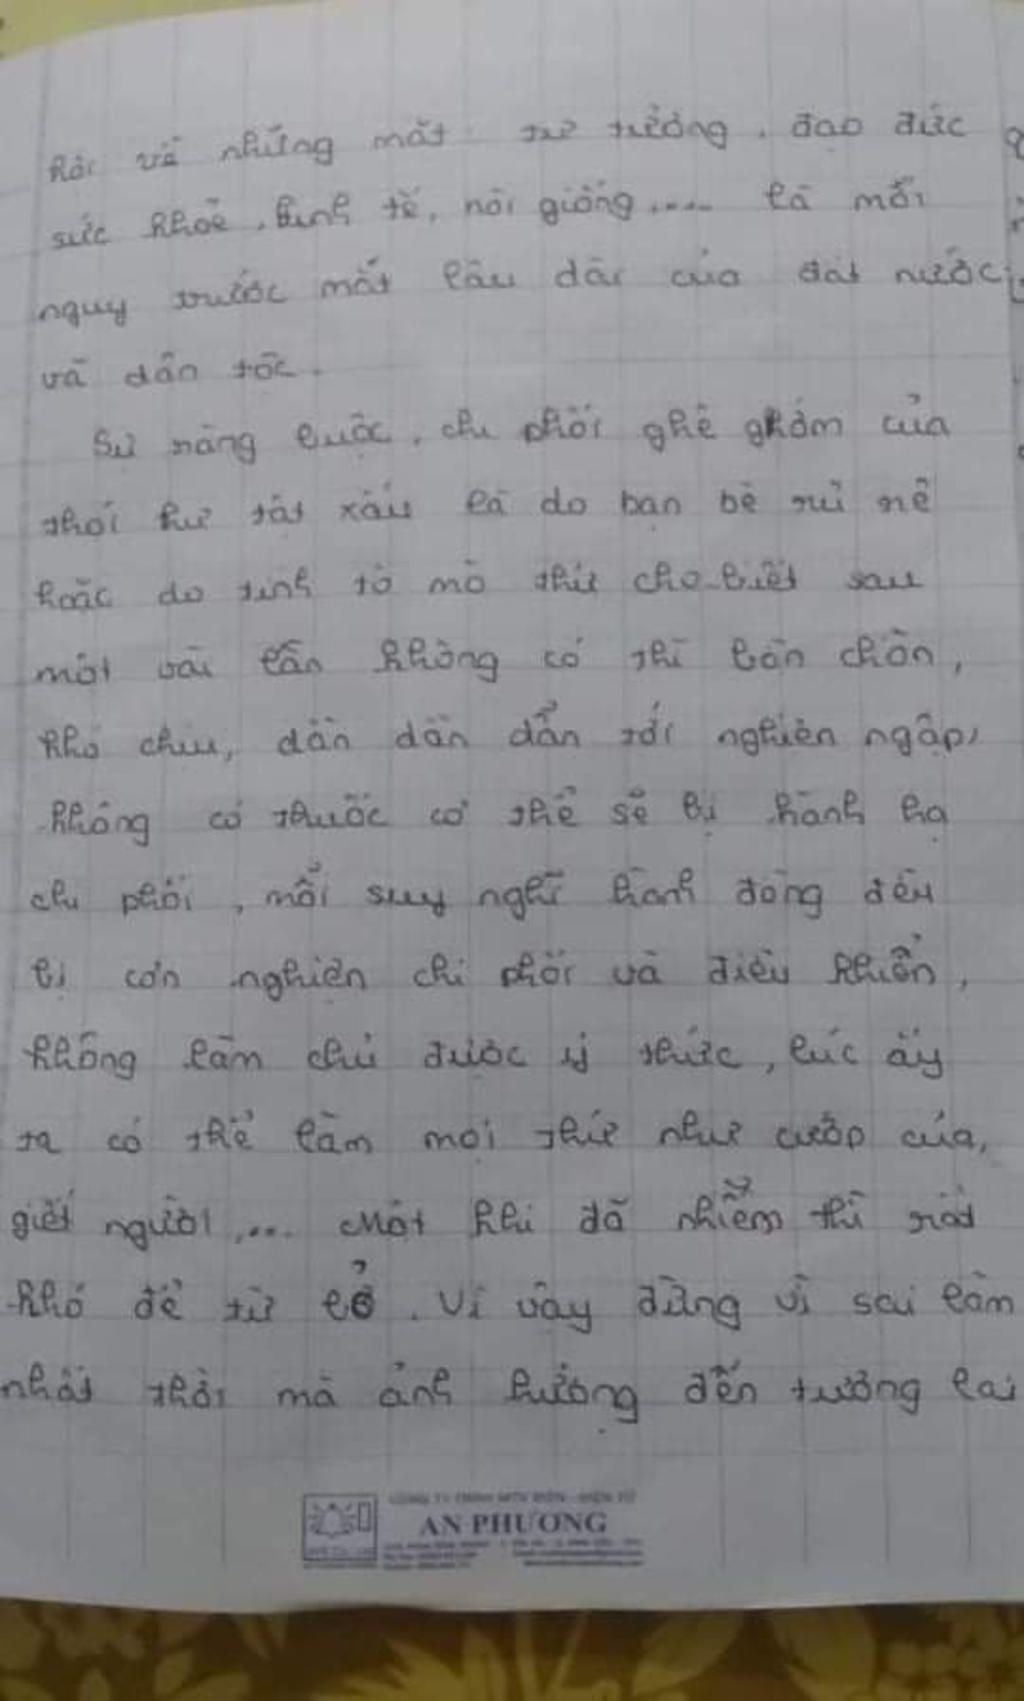 hội về những mặt tư tưởng, đạo đức
sức khoẻ, kinh tế, nòi giống.... là mối
nguy trước mắt lâu dài của đất nước
và dân tộc.
Sự ràng buộc, chi phối ghê ghớm của
thói hư tật xấu là do bạn bè rủ rê
hoặc do tính tò mò thử cho biết sau
một vài lần không có thì bồn chồn,
khó chịu, dần dần dẫn tới nghiện ngập,
không có thuốc cơ thể sẽ bị hành hạ
chi phối, mỗi suy nghĩ hành động đều
bị cơn nghiện chi phối và điều khiển,
không làm chủ được ý thức, lúc ấy
ta có thể làm mọi thứ như cướp của,
giết người,... Một khi đã nhiễm thì rất
khó để từ bỏ. Vì vậy đừng vì sai lầm
nhất thời mà ảnh hưởng đến tương lai
CÔNG TY TNHH MTV ĐIỆN - ĐIỆN TỬ
AN PHƯƠNG